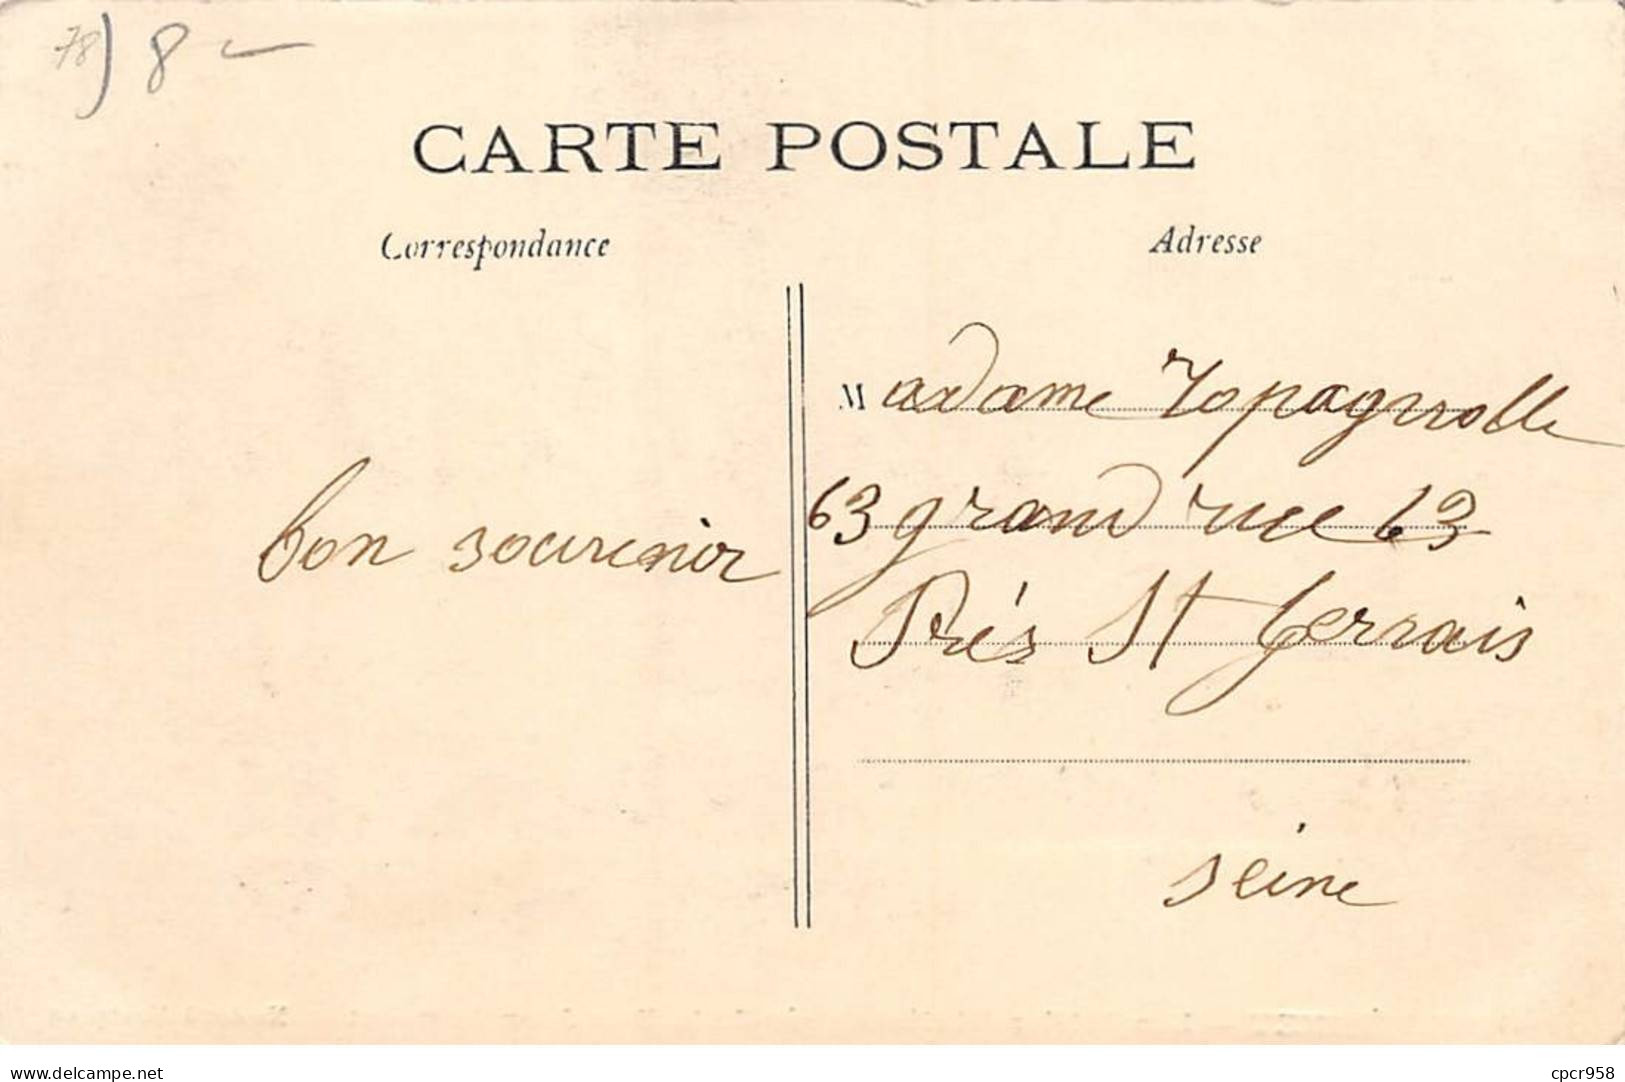 78) 8 -
CARTE POSTALE
Correspondance
Adresse
Madame Topagnolle
63 grand rue 63
bon souvenir
Prés St Gervais
seine
www.delcampe.net
cpcr958